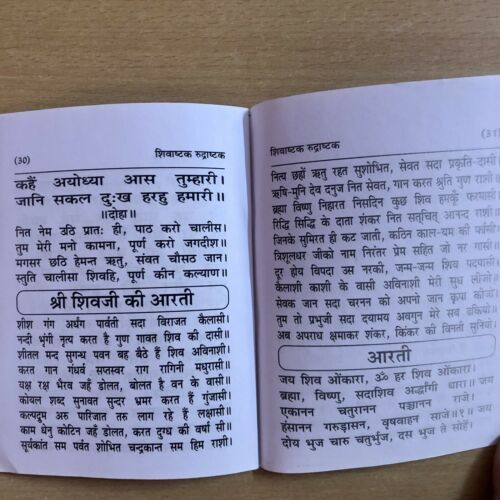 (30) शिवाष्टक रुद्राष्टक
कहैं अयोध्या आस तुम्हारी।
जानि सकल दुःख हरहु हमारी।
॥दोहा॥
नित नेम उठि प्रातः ही, पाठ करो चालीस।
तुम मेरी मनो कामना, पूर्ण करो जगदीश॥
मगसर छठि हेमन्त ऋतु, संवत चौसठ जान।
स्तुति चालीसा शिवहि, पूर्ण कीन कल्याण॥
श्री शिवजी की आरती
शीश गंग अर्धंग पार्वती सदा विराजत कैलासी।
नन्दी भृंगी नृत्य करत है गुण गावत शिव की दासी॥
शीतल मन्द सुगन्ध पवन बह बैठे हैं शिव अविनाशी।
करत गान गंधर्व सप्तस्वर राग रागिनी मधुरासी॥
यक्ष रक्ष भैरव जहँ डोलत, बोलत है वन के वासी।
कोयल शब्द सुनावत सुन्दर भ्रमर करत हैं गुंजासी॥
कल्पद्रुम अरु पारिजात तरु लाग रहे हैं लक्षासी॥
काम धेनु कोटिन जहँ डोलत, करत दुग्ध की वर्षा सी॥
सूर्यकांत सम पर्वत शोभित चन्द्रकान्त सम हिम राशी।
शिवाष्टक रुद्राष्टक (31)
नित्य छहों ऋतु रहत सुशोभित, सेवत सदा प्रकृति-दासी।
ऋषि-मुनि देव दनुज नित सेवत, गान करत श्रुति गुण राशी॥
ब्रह्मा विष्णु निहारत निसदिन कुछ शिव हमकूँ फरमासी।
रिद्धि सिद्धि के दाता शंकर नित सतचित् आनन्द राशी॥
जिनके सुमिरत ही कट जाती, कठिन काल-यम की फाँसी।
त्रिशूलधर जीको नाम निरंतर प्रेम सहित जो नर गासी।
दूर होय विपदा उस नरकी, जन्म-जन्म शिव पदपासी।
कैलाशी काशी के वासी अविनाशी मेरी सुध लीजो।
सेवक जान सदा चरनन को अपनो जान कृपा कीजो॥
तुम तो प्रभुजी सदा दयामय अवगुन मेरे सब ढकियो।
अब अपराध क्षमाकर शंकर, किंकर की विनती सुनियो॥
आरती
जय शिव ओंकारा, ॐ हर शिव ओंकारा।
ब्रह्मा, विष्णु, सदाशिव अर्द्धांगी धारा॥ जय
एकानन चतुरानन पञ्चानन राजे।
हंसानन गरुड़ासन, वृषवाहन साजे॥१॥ जय
दोय भुज चारु चतुर्भुज, दस भुज ते सोहें।